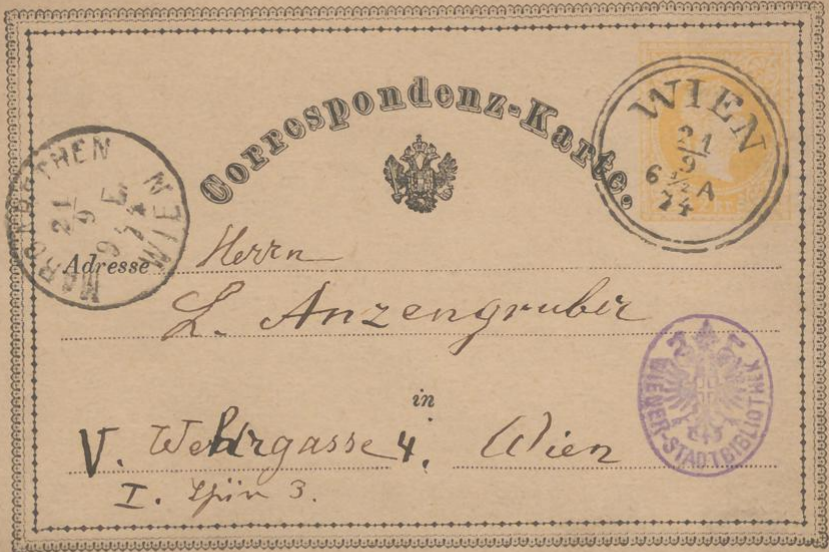 Correspondenz-Karte.
WIEN
21
9
6 1/2 A
74
WIEN
21
9
9
74
Adresse Herrn
L. Anzengruber
in
V. Wehrgasse 4. Wien
I. Thür 3.
WIENER-STADTBIBLIOTHEK